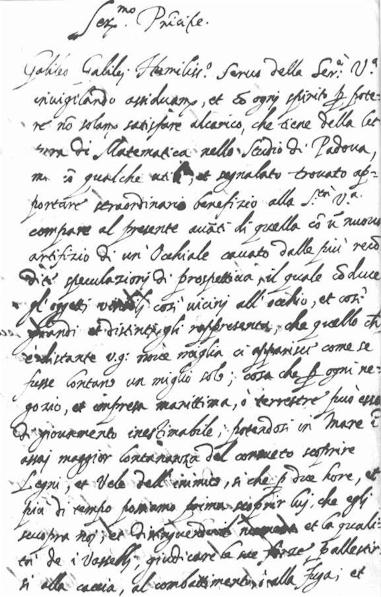 Ser.mo Principe.
Galileo Galilei Humiliss.o Servo della Ser.a V.a
invigilando assiduam.te, et cõ ogni spirito p pote-
re nõ solam.te satisfare al carico, che tiene della let-
tura di Matematica nello Studio di Padova,
cõ qualche utile, et segnalato trovato ap-
portare straordinario benefizio alla S.ta V.a
compare al presente avanti di quella cõ ũ nuovo
artifizio di un Occhiale cavato dalle più recõ
dite speculazioni di prospettiva, il quale cõduce
gl'oggetti così vicini all'occhio, et così
grandi et distinti gli rappresenta, che quello ch
è distante v.g. nove miglia ci apparisce come se
fusse lontano un miglio solo; cosa che p ogni ne-
gozio, et impresa marittima, o terrestre può esser
di giovamento inestimabile, potendosi in Mare ĩ
assai maggior lontananza del consueto scoprire
Legni, et Vele dell'inimico, sì che p due hore, et
più di tempo possiamo prima scoprir lui, che egli
scuopra noi; et distinguendo il numero et la quali-
tà de i Vasselli giudicare le sue forze p allestir-
si alla caccia, al combattimento, o alla fuga; et